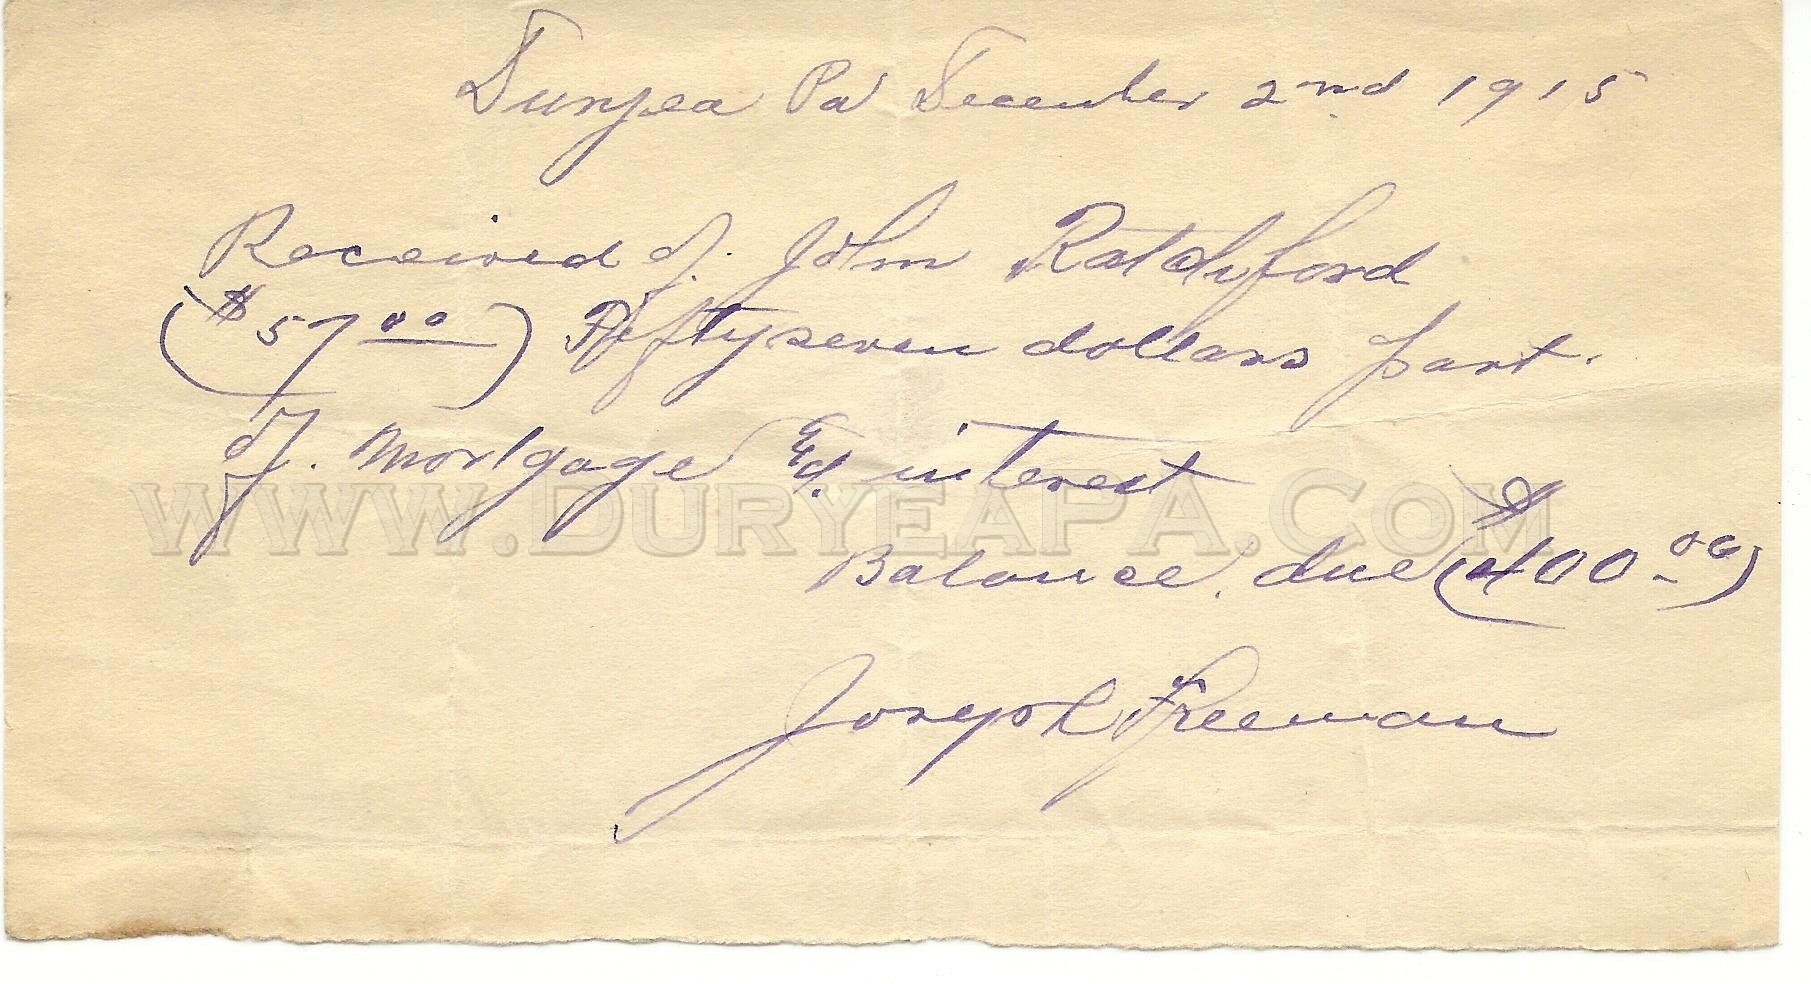 Duryea Pa December 2nd 1915
Received of. John Ratchford
($57.00) Fiftyseven dollars part.
of. Mortgage & interest
WWW.DURYEAPA.COM
Balance due ($400.00)
Joseph Freeman